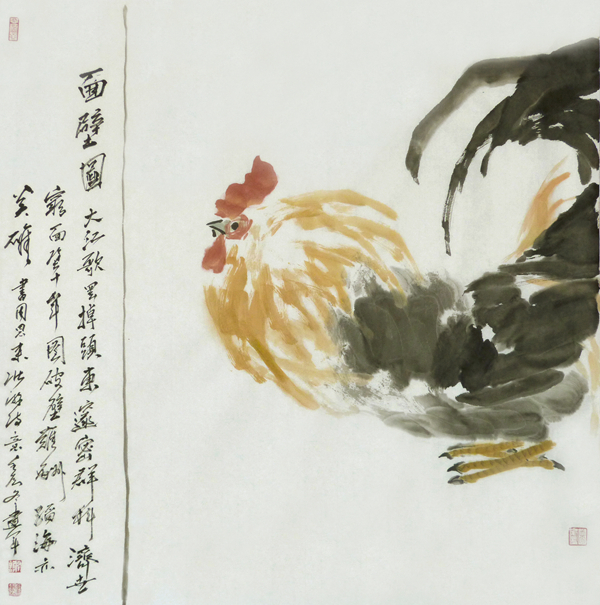 面壁圖 大江歌罢掉頭東邃密群科濟世
窮面壁十年圖破壁難酬蹈海亦
英雄 書周恩来詩意冬建军